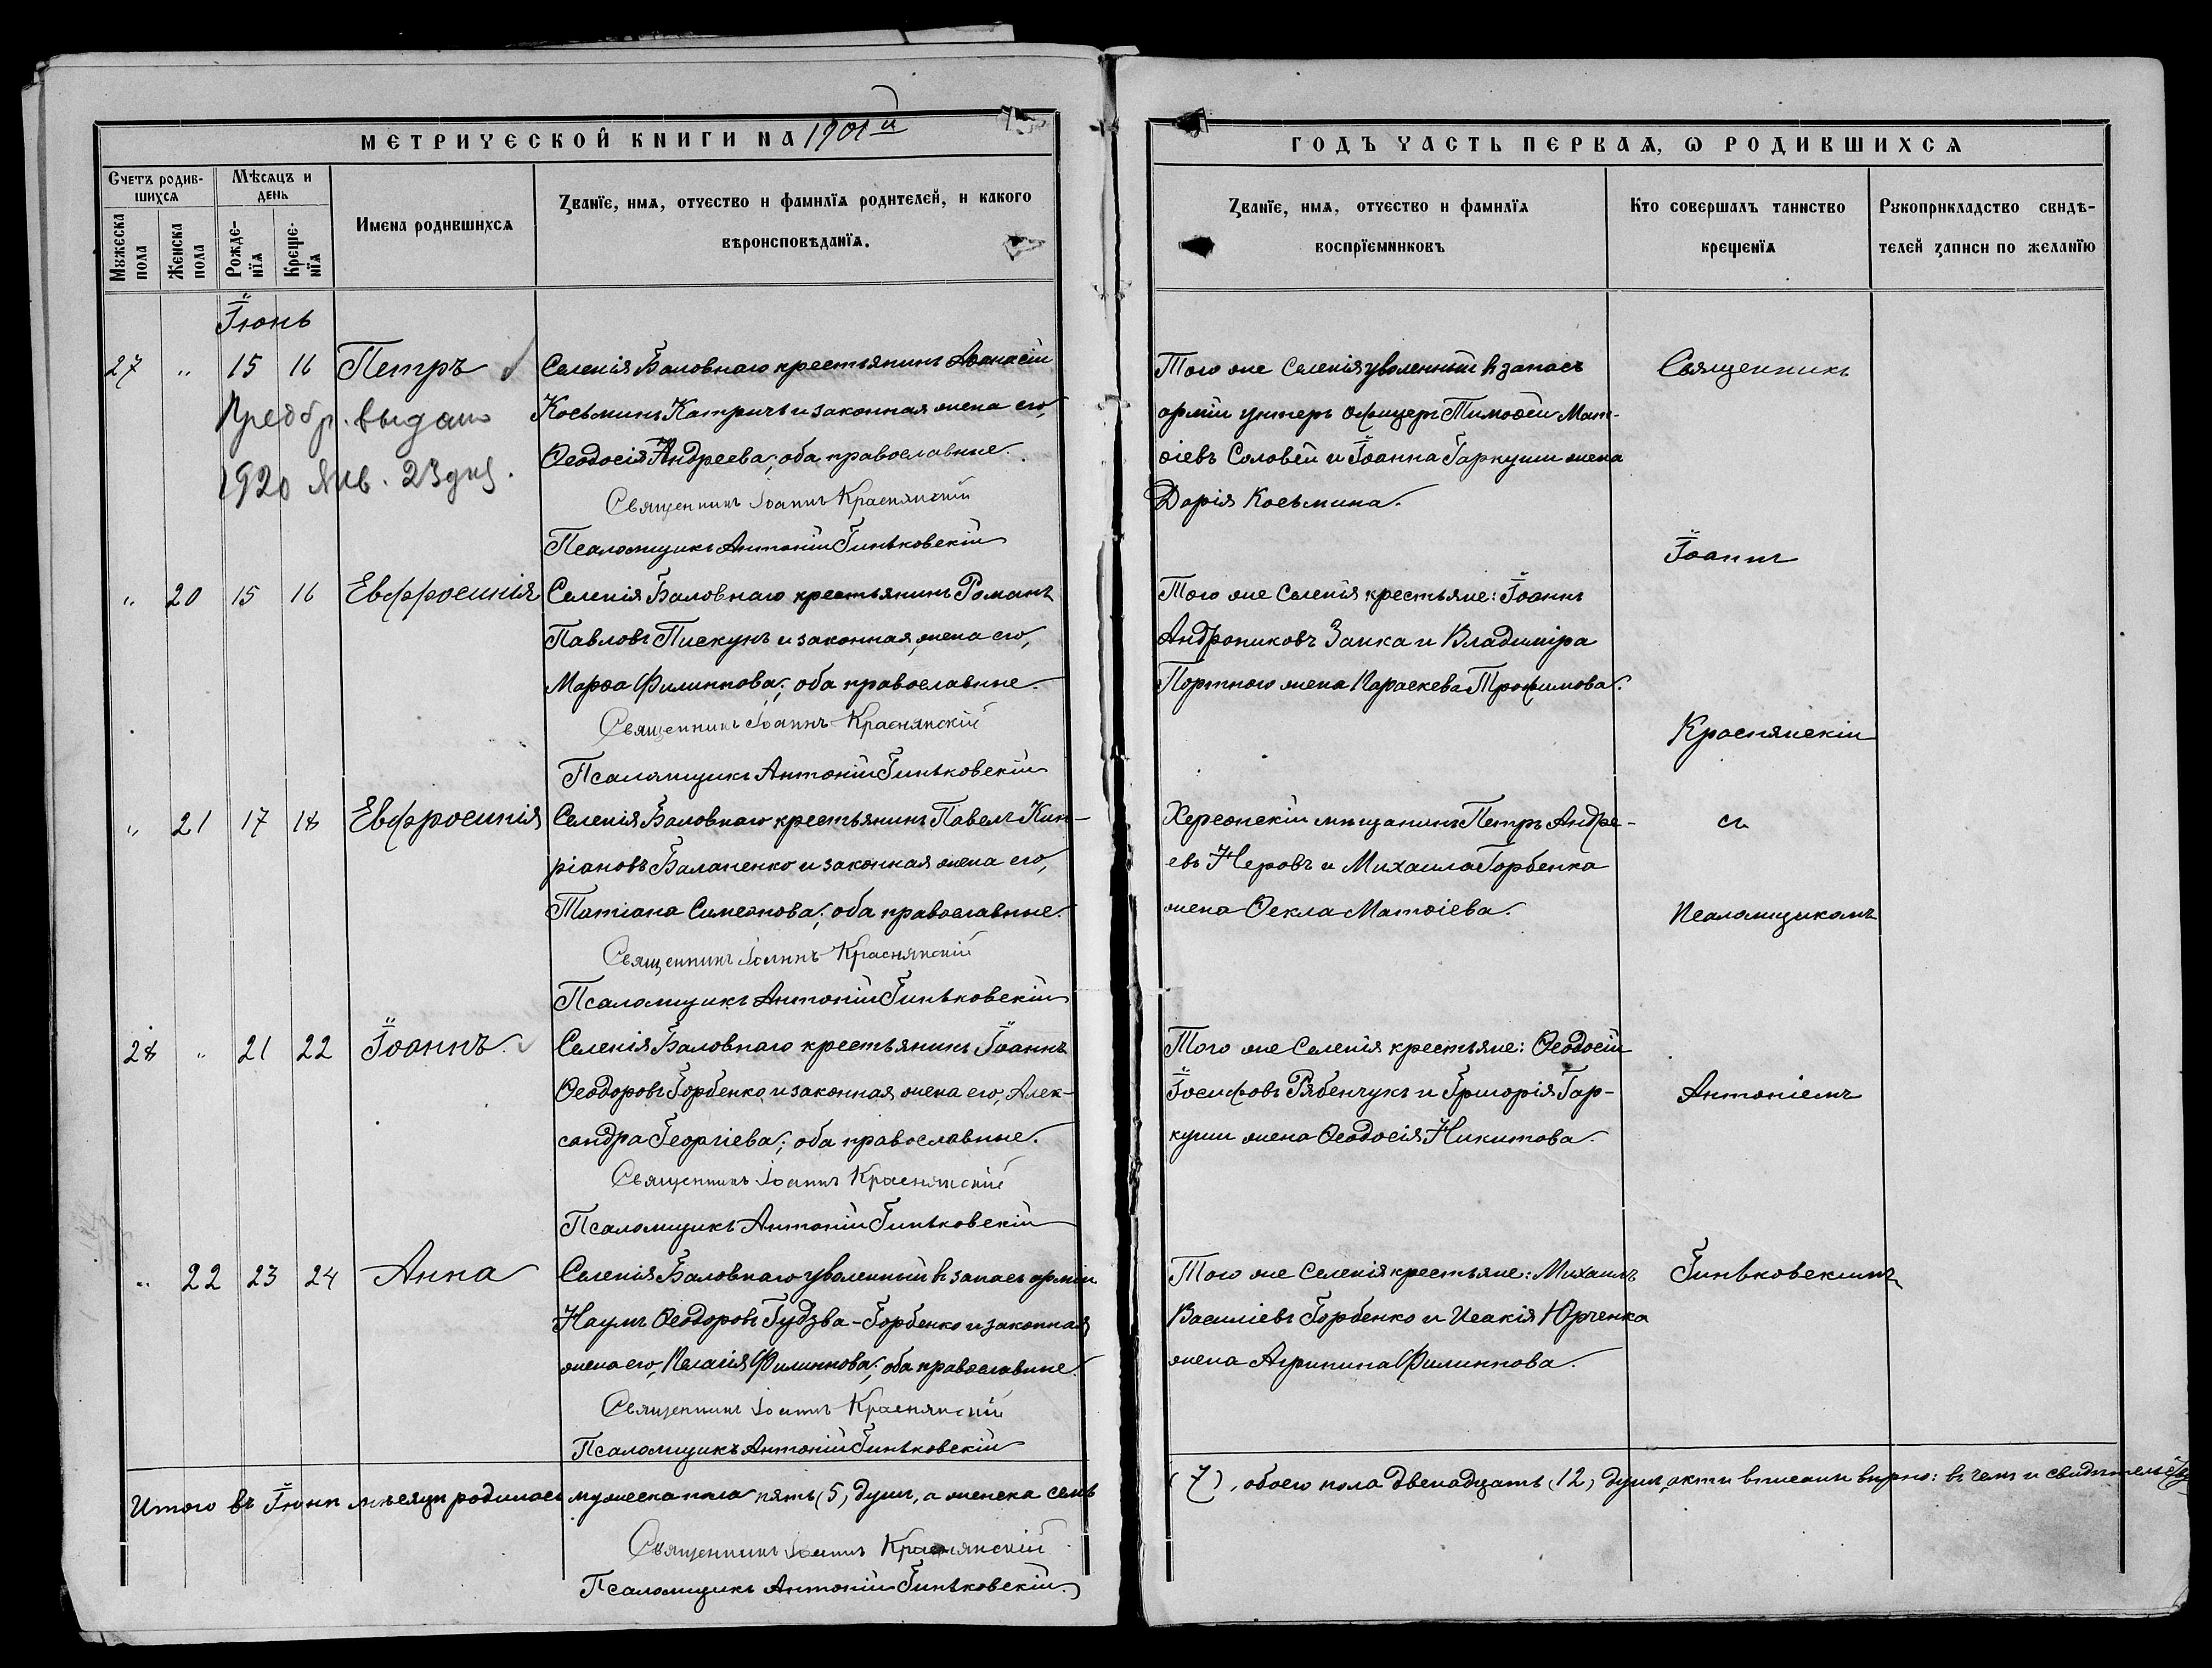 МЕТРИЧЕСКОЙ КНИГИ НА 1901й
Счетъ родив-
шихся
Мѣсяцъ и
день
Мужеска
пола
Женска
пола
Рожде-
нїя
Креще-
нїя
Имена родившихся
Званїе, имя, отчество и фамилїя родителей, и какого
вѣроисповѣданїя.
Іюнь
27 " 15 16 Петръ
Селенія Баловнаго крестьянинъ Аѳанасій
Косьминъ Катричъ и законная жена его,
Ѳеодосія Андреева; оба православные.
Предбр. выдано
1920 Янв. 23 дня.
Священникъ Іоаннъ Краснянскій
Псаломщикъ Антоній Гиньковскій
" 20 15 16 Евфросинія
Селенія Баловнаго крестьянинъ Романъ
Павловъ Пискунъ и законная жена его,
Марѳа Филиппова; оба православные.
Священникъ Іоаннъ Краснянскій
Псаломщикъ Антоній Гиньковскій
" 21 17 18 Евфросинія
Селенія Баловнаго крестьянинъ Павелъ Кип-
ріановъ Балаценко и законная жена его,
Татіана Симеонова; оба православные.
Священникъ Іоаннъ Краснянскій
Псаломщикъ Антоній Гиньковскій
28 " 21 22 Іоаннъ.
Селенія Баловнаго крестьянинъ Іоаннъ
Ѳеодоровъ Горбенко и законная жена его, Алек-
сандра Георгіева; оба православные.
Священникъ Іоаннъ Краснянскій
Псаломщикъ Антоній Гиньковскій
" 22 23 24 Анна
Селенія Баловнаго уволенный въ запасъ арміи
Наумъ Ѳеодоровъ Гудзва-Горбенко и законная
жена его, Пелагія Филиппова; оба православные.
Священникъ Іоаннъ Краснянскій
Псаломщикъ Антоній Гиньковскій
Итого въ Іюнѣ мѣсяцѣ родилось мужеска пола пять (5) душъ, а женска семь
Священникъ Іоаннъ Краснянскій
Псаломщикъ Антоній Гиньковскій.
ГОДЪ ЧАСТЬ ПЕРВАЯ, Ѡ РОДИВШИХСЯ
Званїе, имя, отчество и фамилїя
воспрїемниковъ
Кто совершалъ таинство
крещенїя
Рукоприкладство свидѣ-
телей записи по желанїю
Того же селенія уволенный въ запасъ
арміи унтеръ офицеръ Тимоѳей Мат-
ѳіевъ Соловей и Іоанна Гаркуши жена
Дарія Косьмина.
Того же селенія крестьяне: Іоаннъ
Андрониковъ Заика и Владиміра
Портного жена Параскева Трофимова.
Херсонскій мѣщанинъ Петръ Андре-
евъ Неровъ и Михаила Горбенка
жена Ѳекла Матѳіева.
Того же Селенія крестьяне: Ѳеодосій
Іосифовъ Рябенчукъ и Григорія Гар-
куши жена Ѳеодосія Никитова.
Того же Селенія крестьяне: Михаилъ
Василіевъ Горбенко и Исакія Юрченка
жена Агрипина Филиппова.
Священникъ
Іоаннъ
Краснянскій
съ
псаломщикомъ
Антоніемъ
Гиньковскимъ
(7), обоего пола двенадцать (12) душъ, акты вписаны вѣрно: въ чемъ и свидѣтельству-